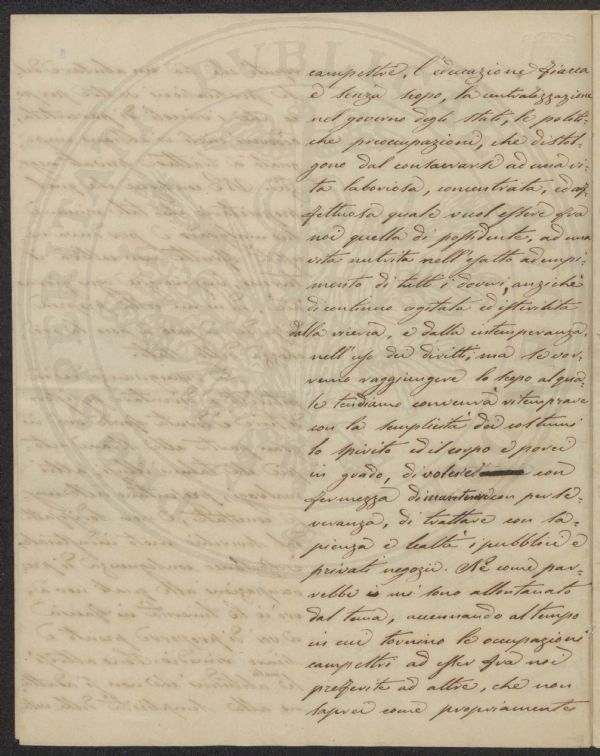 campestre, l'educazione fiacca
e senza scopo, la centralizzazione
nel governo degli stati, le politi-
che preoccupazioni, che distol-
gono dal consacrarsi ad una vi-
ta laboriosa, concentrata, ed af-
fettuosa quale vuol essere fra
noi quella di possidente, ad una
vita nutrita nell'esatto adempi-
mento di tutti i doveri, anziché
di continuo agitata ed isterilita
dalla ricerca, e dalla intemperanza,
nell'uso dei diritti; ma se vor-
remo raggiungere lo scopo al qua-
le tendiamo converrà ritemprare
con la semplicità dei costumi
lo spirito ed il corpo e porci
in grado, di volere con
fermezza di mantenere con perse-
veranza, di trattare con sa-
pienza e lealtà i pubblici e
privati negozi. Né come par-
rebbe mi sono allontanato
dal tema, accennando al tempo
in cui tornino le occupazioni
campestri ad esser fra noi
preferite ad altre, che non
saprei come propriamente